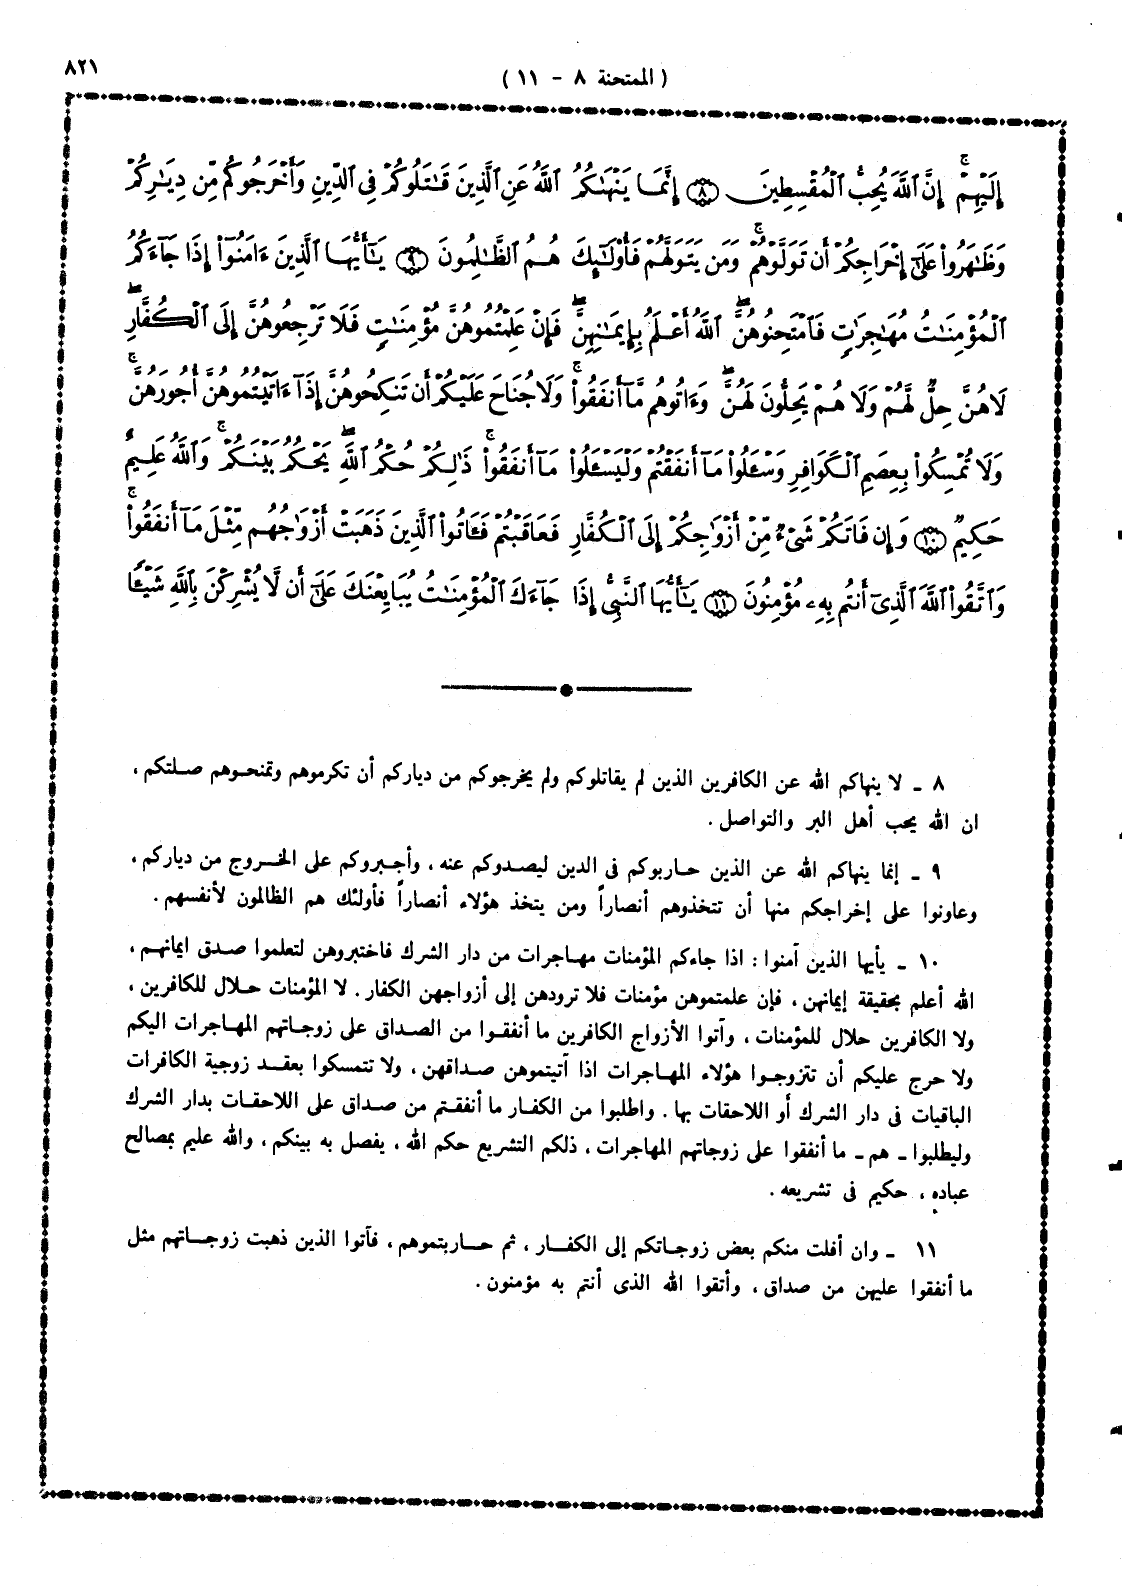 ٨٢١
( الممتحنة ٨ - ١١ )
إِلَيْهِمْ ۚ إِنَّ ٱللَّهَ يُحِبُّ ٱلْمُقْسِطِينَ ٨ إِنَّمَا يَنْهَىٰكُمُ ٱللَّهُ عَنِ ٱلَّذِينَ قَـٰتَلُوكُمْ فِى ٱلدِّينِ وَأَخْرَجُوكُم مِّن دِيَـٰرِكُمْ
وَظَـٰهَرُوا۟ عَلَىٰٓ إِخْرَاجِكُمْ أَن تَوَلَّوْهُمْ ۚ وَمَن يَتَوَلَّهُمْ فَأُو۟لَـٰٓئِكَ هُمُ ٱلظَّـٰلِمُونَ ٩ يَـٰٓأَيُّهَا ٱلَّذِينَ ءَامَنُوٓا۟ إِذَا جَآءَكُمُ
ٱلْمُؤْمِنَـٰتُ مُهَـٰجِرَٰتٍ فَٱمْتَحِنُوهُنَّ ۖ ٱللَّهُ أَعْلَمُ بِإِيمَـٰنِهِنَّ ۖ فَإِنْ عَلِمْتُمُوهُنَّ مُؤْمِنَـٰتٍ فَلَا تَرْجِعُوهُنَّ إِلَى ٱلْكُفَّارِ ۖ
لَا هُنَّ حِلٌّ لَّهُمْ وَلَا هُمْ يَحِلُّونَ لَهُنَّ ۖ وَءَاتُوهُم مَّآ أَنفَقُوا۟ ۚ وَلَا جُنَاحَ عَلَيْكُمْ أَن تَنكِحُوهُنَّ إِذَآ ءَاتَيْتُمُوهُنَّ أُجُورَهُنَّ ۚ
وَلَا تُمْسِكُوا۟ بِعِصَمِ ٱلْكَوَافِرِ وَسْـَٔلُوا۟ مَآ أَنفَقْتُمْ وَلْيَسْـَٔلُوا۟ مَآ أَنفَقُوا۟ ۚ ذَٰلِكُمْ حُكْمُ ٱللَّهِ ۖ يَحْكُمُ بَيْنَكُمْ ۚ وَٱللَّهُ عَلِيمٌ
حَكِيمٌ ١٠ وَإِن فَاتَكُمْ شَىْءٌ مِّنْ أَزْوَٰجِكُمْ إِلَى ٱلْكُفَّارِ فَعَاقَبْتُمْ فَـَٔاتُوا۟ ٱلَّذِينَ ذَهَبَتْ أَزْوَٰجُهُم مِّثْلَ مَآ أَنفَقُوا۟ ۚ
وَٱتَّقُوا۟ ٱللَّهَ ٱلَّذِىٓ أَنتُم بِهِۦ مُؤْمِنُونَ ١١ يَـٰٓأَيُّهَا ٱلنَّبِىُّ إِذَا جَآءَكَ ٱلْمُؤْمِنَـٰتُ يُبَايِعْنَكَ عَلَىٰٓ أَن لَّا يُشْرِكْنَ بِٱللَّهِ شَيْـًٔا
٨ ـ لا ينهاكم الله عن الكافرين الذين لم يقاتلوكم ولم يخرجوكم من دياركم أن تكرموهم وتمنحوهم صلتكم ،
ان الله يحب أهل البر والتواصل .
٩ ـ إنما ينهاكم الله عن الذين حاربوكم فى الدين ليصدوكم عنه ، وأجبروكم على الخروج من دياركم ،
وعاونوا على إخراجكم منها أن تتخذوهم أنصاراً ومن يتخذ هؤلاء أنصاراً فأولئك هم الظالمون لأنفسهم .
١٠ ـ يأيها الذين آمنوا : اذا جاءكم المؤمنات مهاجرات من دار الشرك فاختبروهن لتعلموا صدق ايمانهم ،
الله أعلم بحقيقة إيمانهن ، فإن علمتموهن مؤمنات فلا تردوهن إلى أزواجهن الكفار . لا المؤمنات حلال للكافرين ،
ولا الكافرين حلال للمؤمنات ، وآتوا الأزواج الكافرين ما أنفقوا من الصداق على زوجاتهم المهاجرات اليكم
ولا حرج عليكم أن تتزوجوا هؤلاء المهاجرات اذا آتيتموهن صداقهن ، ولا تتمسكوا بعقد زوجية الكافرات
الباقيات فى دار الشرك أو اللاحقات بها . واطلبوا من الكفار ما أنفقتم من صداق على اللاحقات بدار الشرك
وليطلبوا ـ هم ـ ما أنفقوا على زوجاتهم المهاجرات ، ذلكم التشريع حكم الله ، يفصل به بينكم ، والله عليم بمصالح
عباده ، حكيم فى تشريعه .
١١ ـ وان أفلت منكم بعض زوجاتكم إلى الكفار ، ثم حاربتموهم ، فآتوا الذين ذهبت زوجاتهم مثل
ما أنفقوا عليهن من صداق ، وأتقوا الله الذى أنتم به مؤمنون .